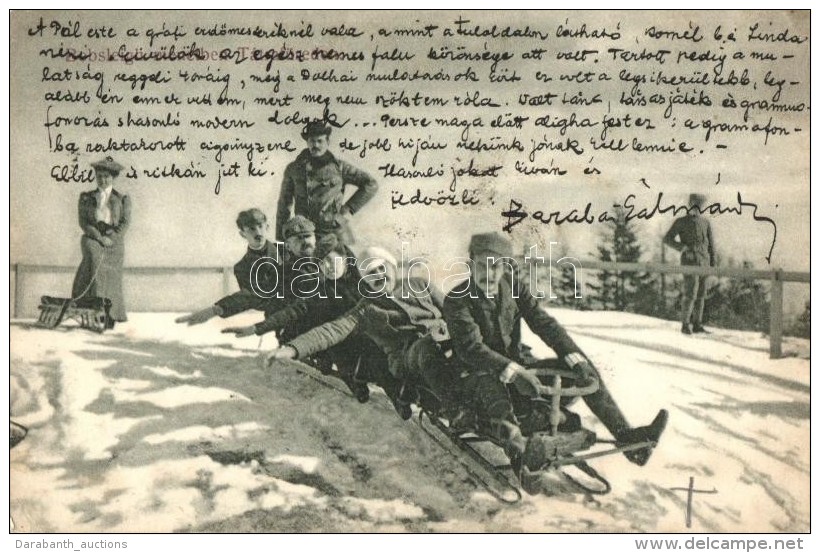 A Pál este a grófi erdőmesteréknél vala, a mint a tuloldalon látható, Kornél b. és Linda
az egész nemes falu közönsége ott volt. Tartott pedig a mu-
latság reggeli 4 óráig, még a Dolhai mulatságok közt ez volt a legsikerültebb, leg-
alább én ennek vettem, mert meg nem szöktem róla. Volt tánc, társasjáték és grammo-
fonozás s hasonló modern dolgok... Persze maga előtt aligha festez: a gramafon-
ba raktározott cigányzene, de jobb híján nekünk jónak kell lennie. -
Ebből is ritkán jut ki. Hasonló jókat kiván és
üdvözli:
Barabás Kálmán
darabanth
Darabanth_auctions
www.delcampe.net